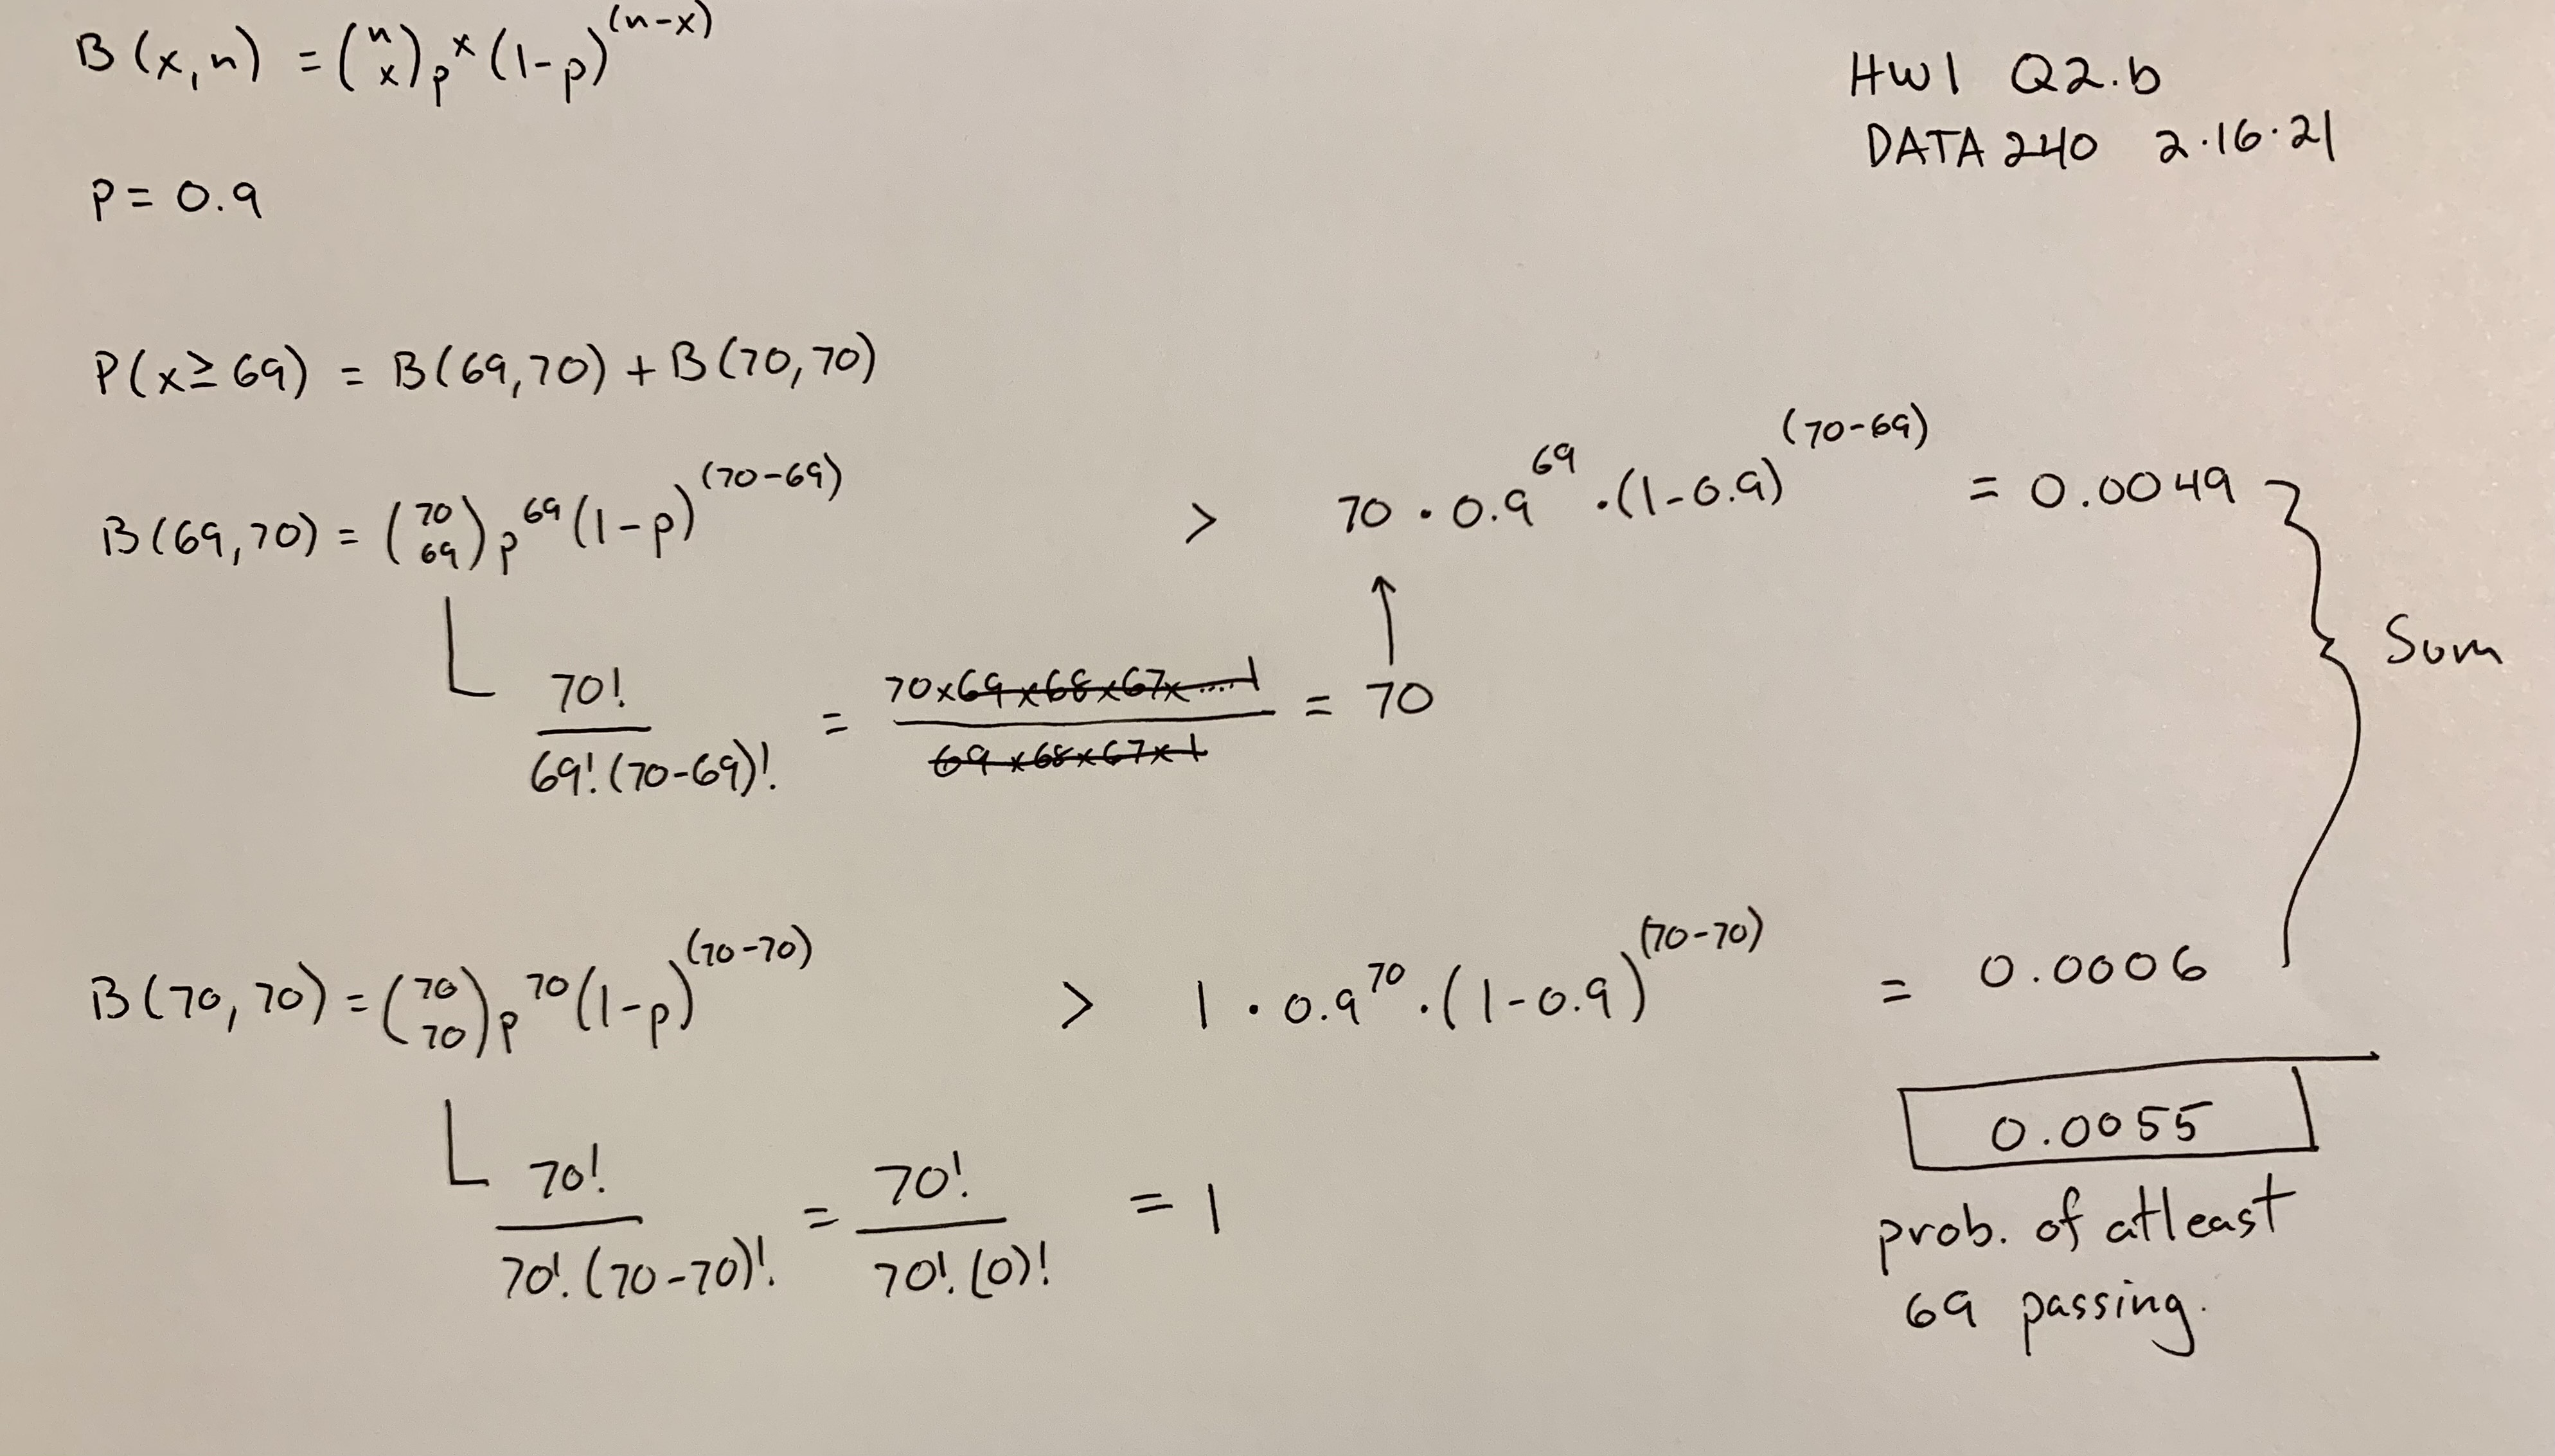 B(x,n) = (n x) p^x (1-p)^(n-x)
HW1 Q2.b
DATA 240 2.16.21
P = 0.9
P(x≥69) = B(69,70) + B(70,70)
B(69,70) = (70 69) p^69 (1-p)^(70-69) > 70 · 0.9^69 · (1-0.9)^(70-69) = 0.0049
Sum
70! / 69!(70-69)! = 70x69x68x67x.....1 / 69x68x67x1 = 70
B(70,70) = (70 70) p^70 (1-p)^(70-70) > 1 · 0.9^70 · (1-0.9)^(70-70) = 0.0006
0.0055
70! / 70!(70-70)! = 70! / 70!(0)! = 1
prob. of atleast
69 passing.